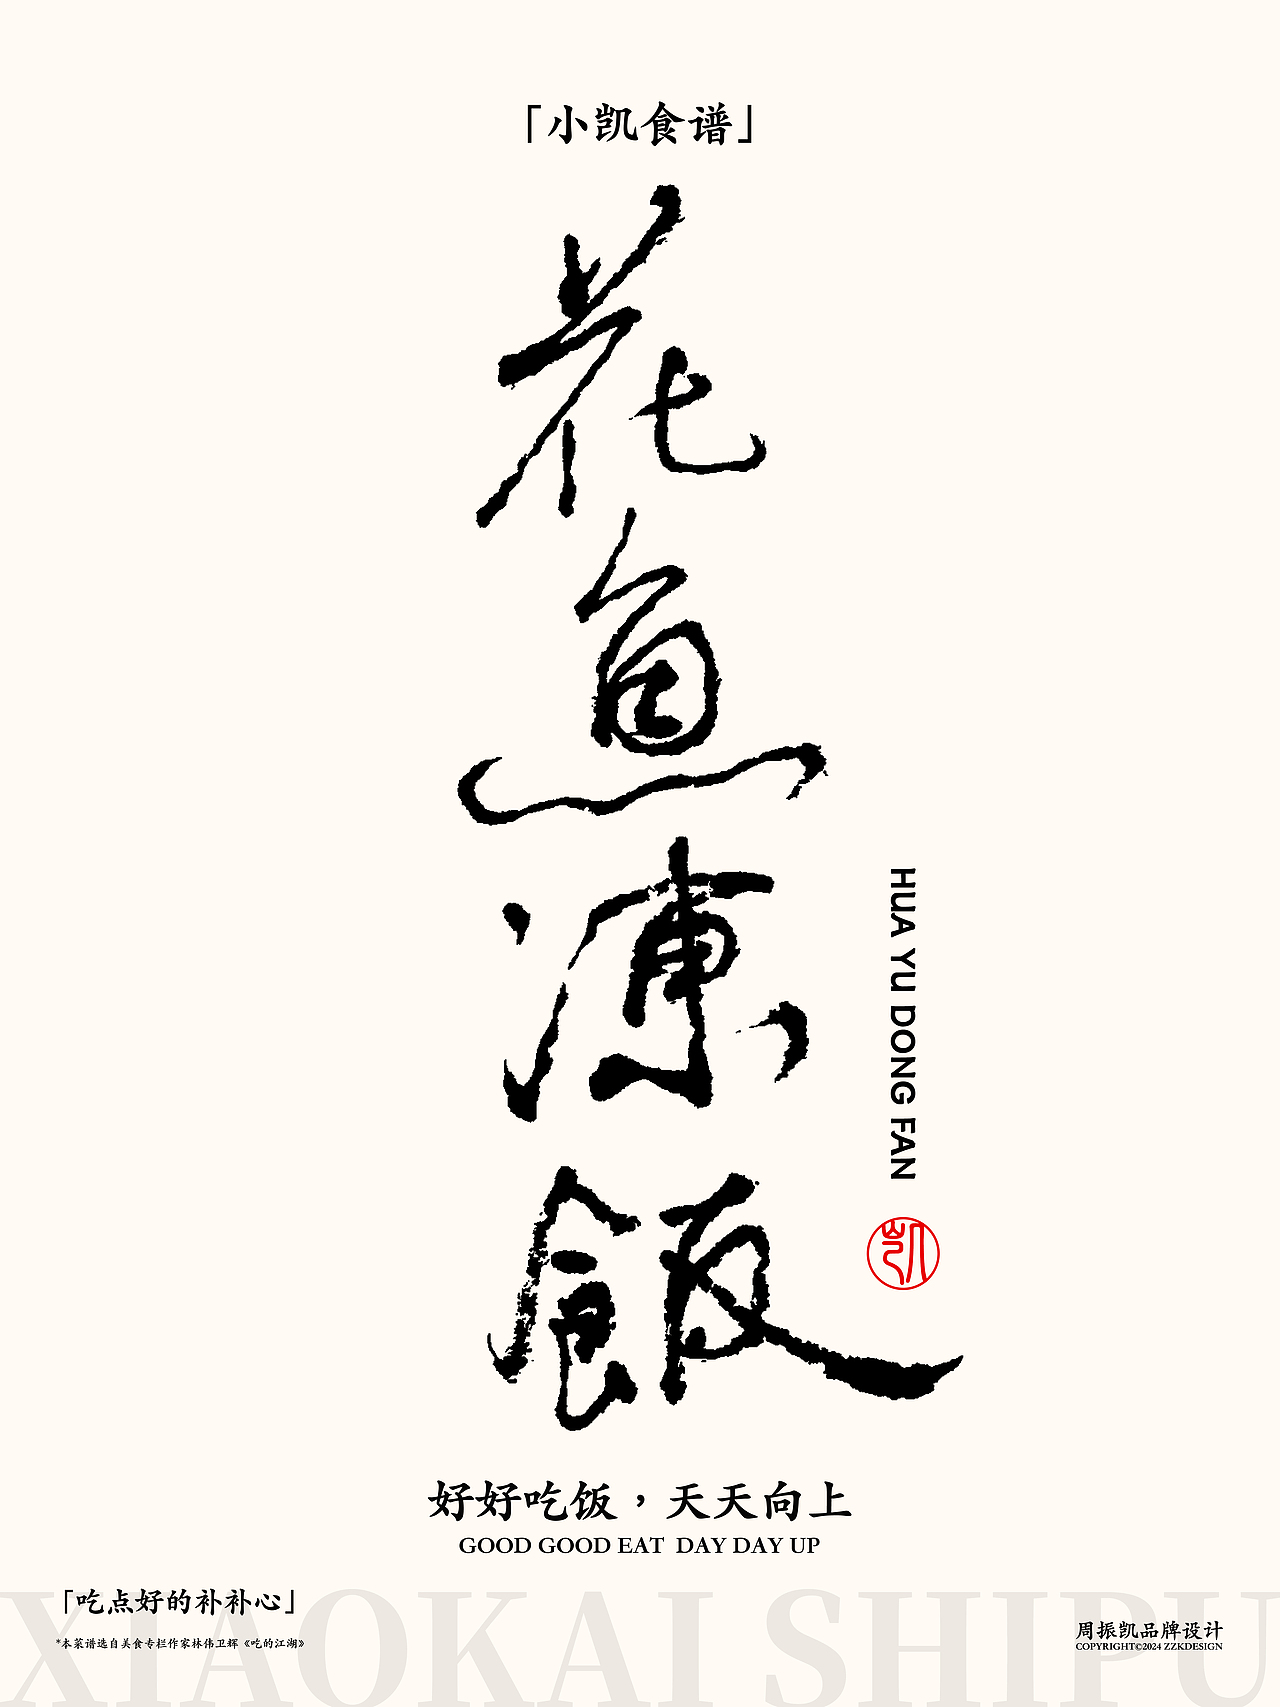 「小凯食谱」
花魚凍飯
HUA YU DONG FAN
凯
好好吃饭，天天向上
GOOD GOOD EAT DAY DAY UP
XIAOKAI SHIPU
「吃点好的补补心」
*本菜谱选自美食专栏作家林伟卫辉《吃的江湖》
周振凯品牌设计
COPYRIGHT©2024 ZZKDESIGN